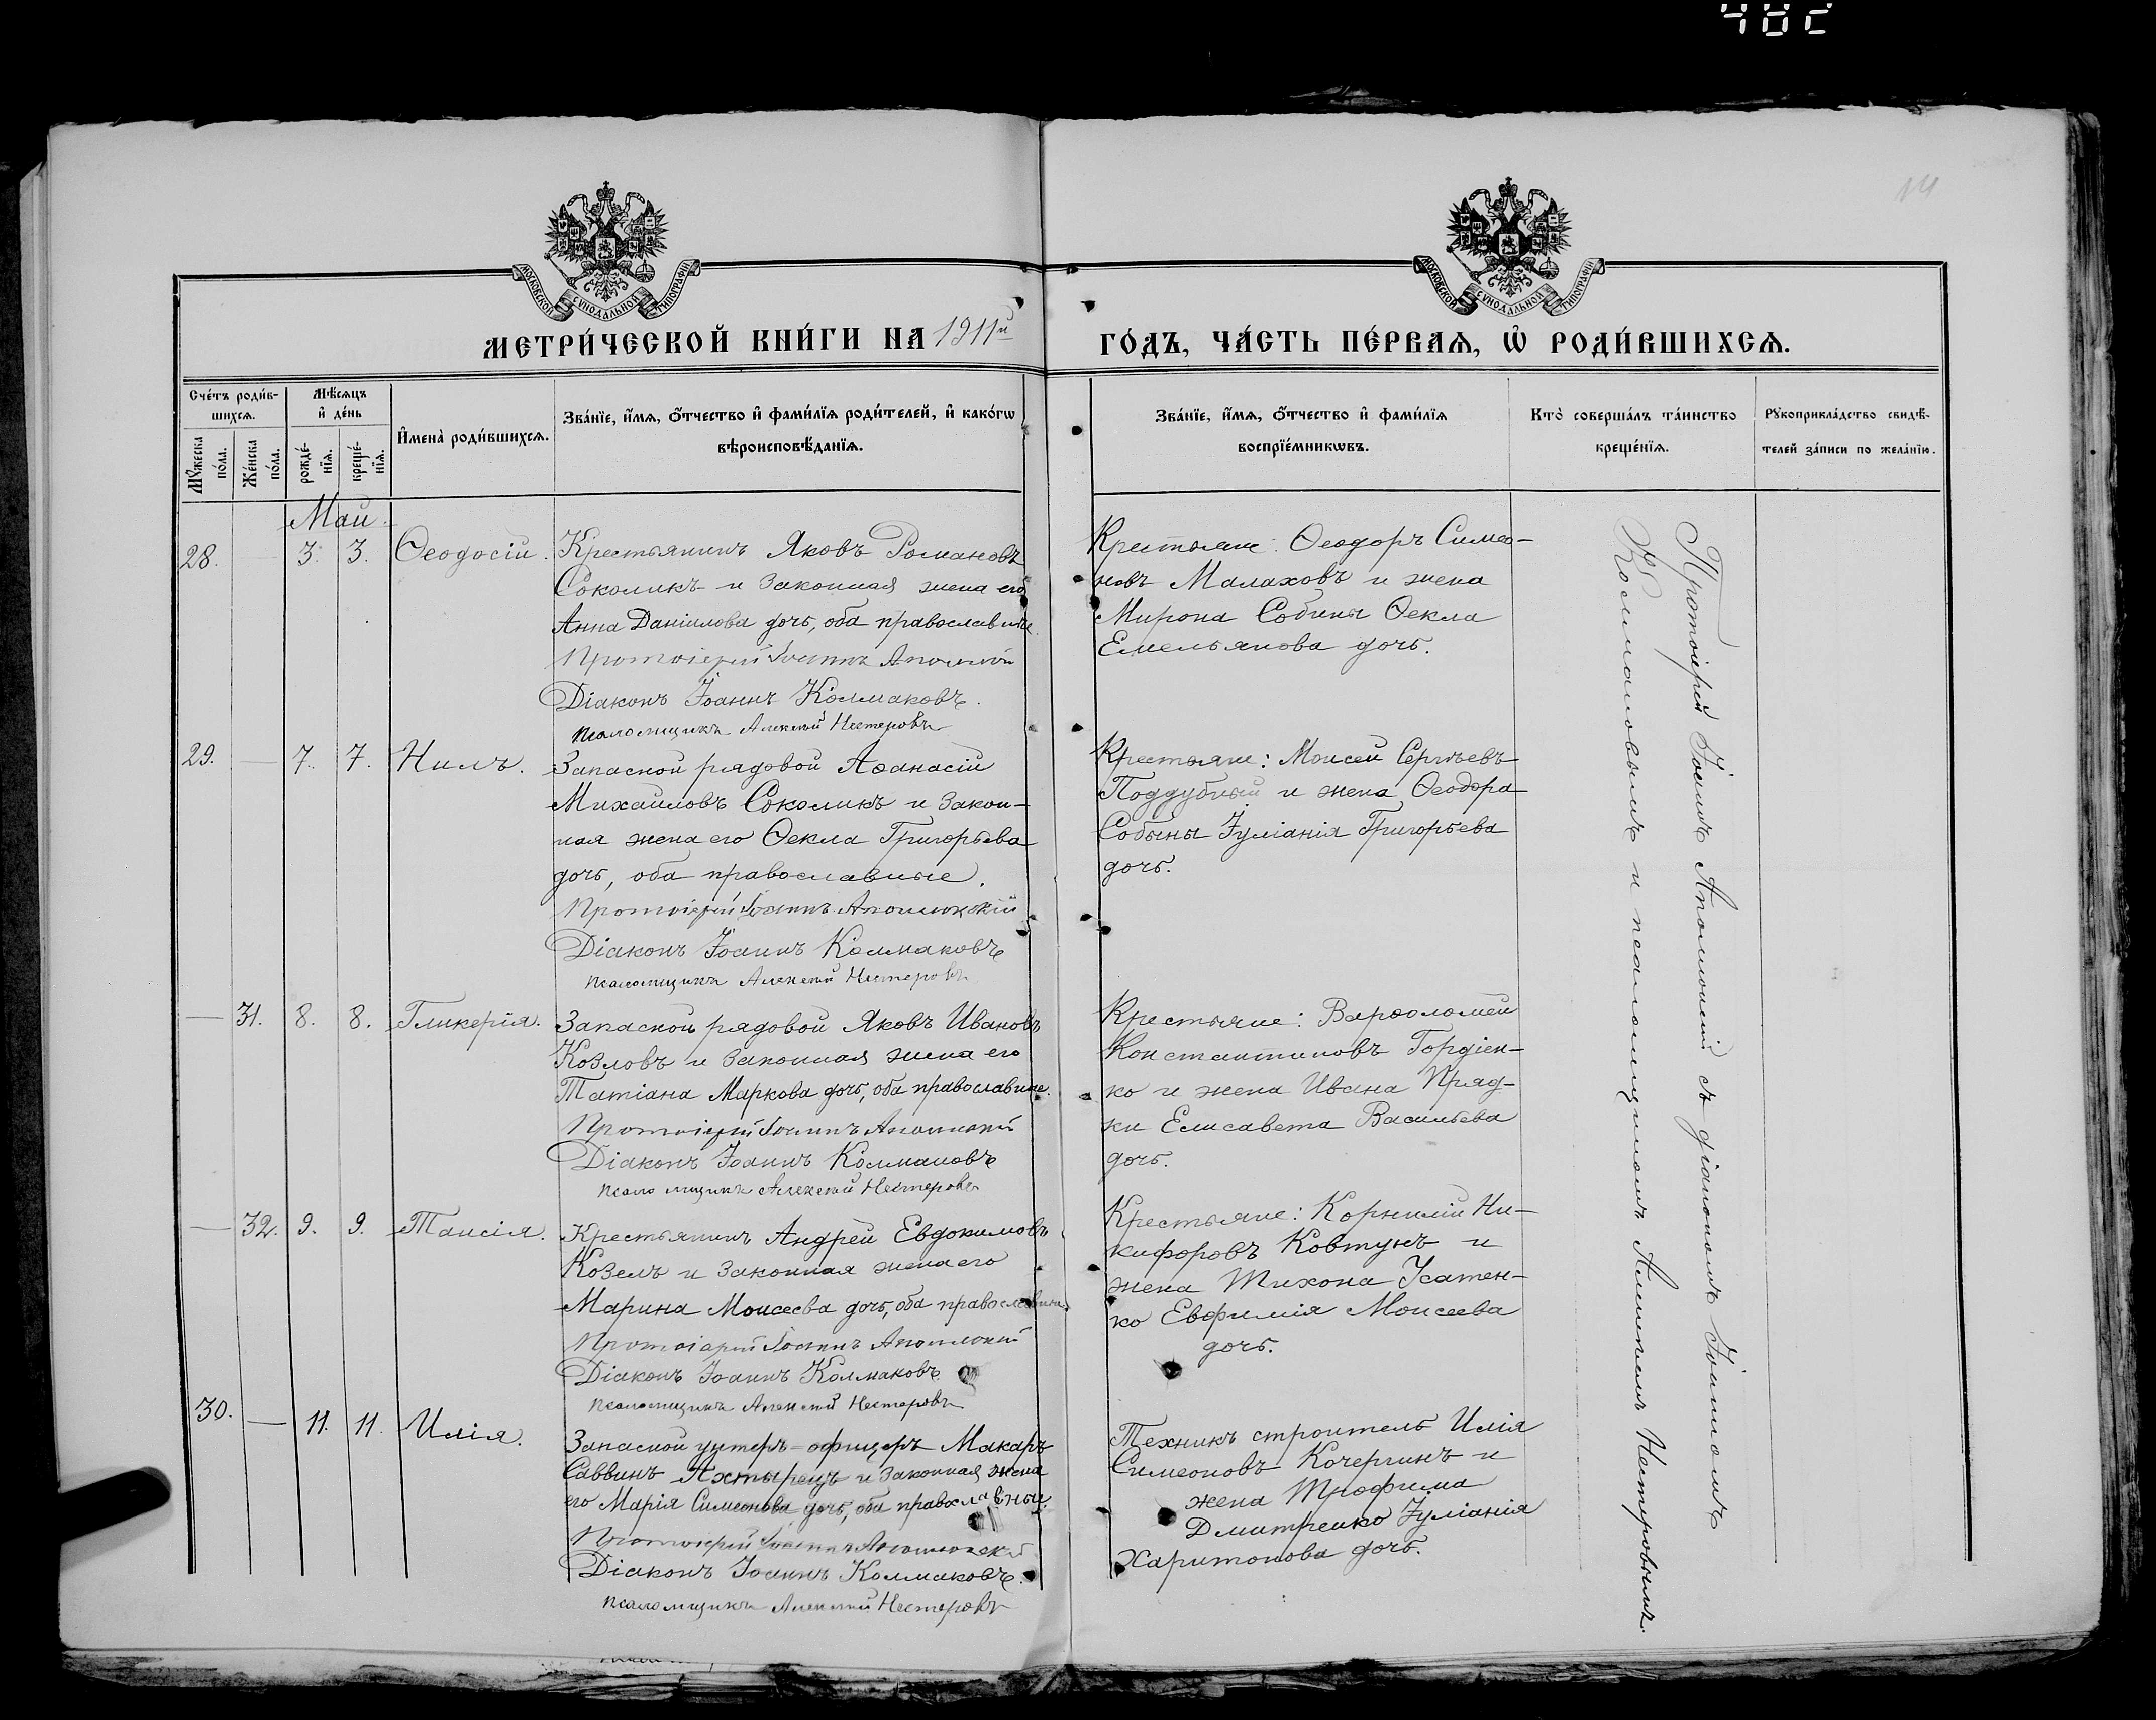 14
МОСКОВСКОЙ СѴНОДАЛЬНОЙ ТИПОГРАФІИ
МОСКОВСКОЙ СѴНОДАЛЬНОЙ ТИПОГРАФІИ
МЕТРИ́ЧЕСКОЙ КНИ́ГИ НА 1911й
ГО́ДЪ, ЧА́СТЬ ПЕ́РВАѦ, Ѡ҆ РОДИ́ВШИХСѦ.
Сче́тъ роди́в-
шихсѧ.
Мꙋ́жеска по́ла.
Же́нска по́ла.
Мѣ́сѧцъ
и҆ де́нь
рожде́-
нїѧ.
креще́-
нїѧ.
И҆мена̀ роди́вшихсѧ.
Зва́нїе, и҆́мѧ, ѻ҆́тчество и҆ фами́лїѧ роди́телей, и҆ како́гѡ
вѣроисповѣ́данїѧ.
Зва́нїе, и҆́мѧ, ѻ҆́тчество и҆ фами́лїѧ
воспрїе́мникѡвъ.
Кто̀ соверша́лъ та́инство
креще́нїѧ.
Рꙋкоприкла́дство свидѣ́-
телей за́писи по жела́нїю.
Май.
28. — 3. 3. Ѳеодосій.
Крестьянинъ Яковъ Романовъ
Соколикъ и законная жена его
Анна Даніилова дочь, оба православные
Протоіерей Іоаннъ
Діаконъ Іоаннъ Колмаковъ.
Псаломщикъ Алексѣй Нестеровъ
Крестьяне: Ѳеодоръ Симео-
новъ Малаховъ и жена
Мирона Собины Ѳекла
Емельянова дочь.
29. — 7. 7. Нилъ.
Запасной рядовой Аѳанасій
Михаиловъ Соколикъ и закон-
ная жена его Ѳекла Григорьева
дочь, оба православные.
Протоіерей Іоаннъ
Діаконъ Іоаннъ Колмаковъ
Псаломщикъ Алексѣй Нестеровъ
Крестьяне: Моисей Сергѣевъ
Поддубный и жена Ѳеодора
Собины Іуліанія Григорьева
дочь.
— 31. 8. 8. Гликерія.
Запасной рядовой Яковъ Ивановъ
Козловъ и законная жена его
Татіана Маркова дочь, оба православные.
Протоіерей Іоаннъ
Діаконъ Іоаннъ Колмаковъ
Псаломщикъ Алексѣй Нестеровъ
Крестьяне: Варѳоломей
Константиновъ Гордіен-
ко и жена Ивана Пряд-
ки Елисавета Васильева
дочь.
— 32. 9. 9. Таисія.
Крестьянинъ Андрей Евдокимовъ
Козелъ и законная жена его
Марина Моисеева дочь, оба православные
Протоіерей Іоаннъ
Діаконъ Іоаннъ Колмаковъ
Псаломщикъ Алексѣй Нестеровъ
Крестьяне: Корнилій Ни-
кифоровъ Ковтунъ и
жена Тихона Усатен-
ко Евфимія Моисеева
дочь.
30. — 11. 11. Илія.
Запасной унтеръ-офицеръ Макаръ
Саввинъ Ахтырецъ и законная жена
его Марія Симеонова дочь, оба православные.
Протоіерей Іоаннъ
Діаконъ Іоаннъ Колмаковъ.
Псаломщикъ Алексѣй Нестеровъ
Техникъ строитель Илія
Симеоновъ Кочергинъ и
жена Трофима
Дмитренко Іуліанія
Харитонова дочь.
Протоіерей Іоаннъ съ діакономъ Іоанномъ
Колмаковымъ и псаломщикомъ Алексѣемъ Нестеровымъ.